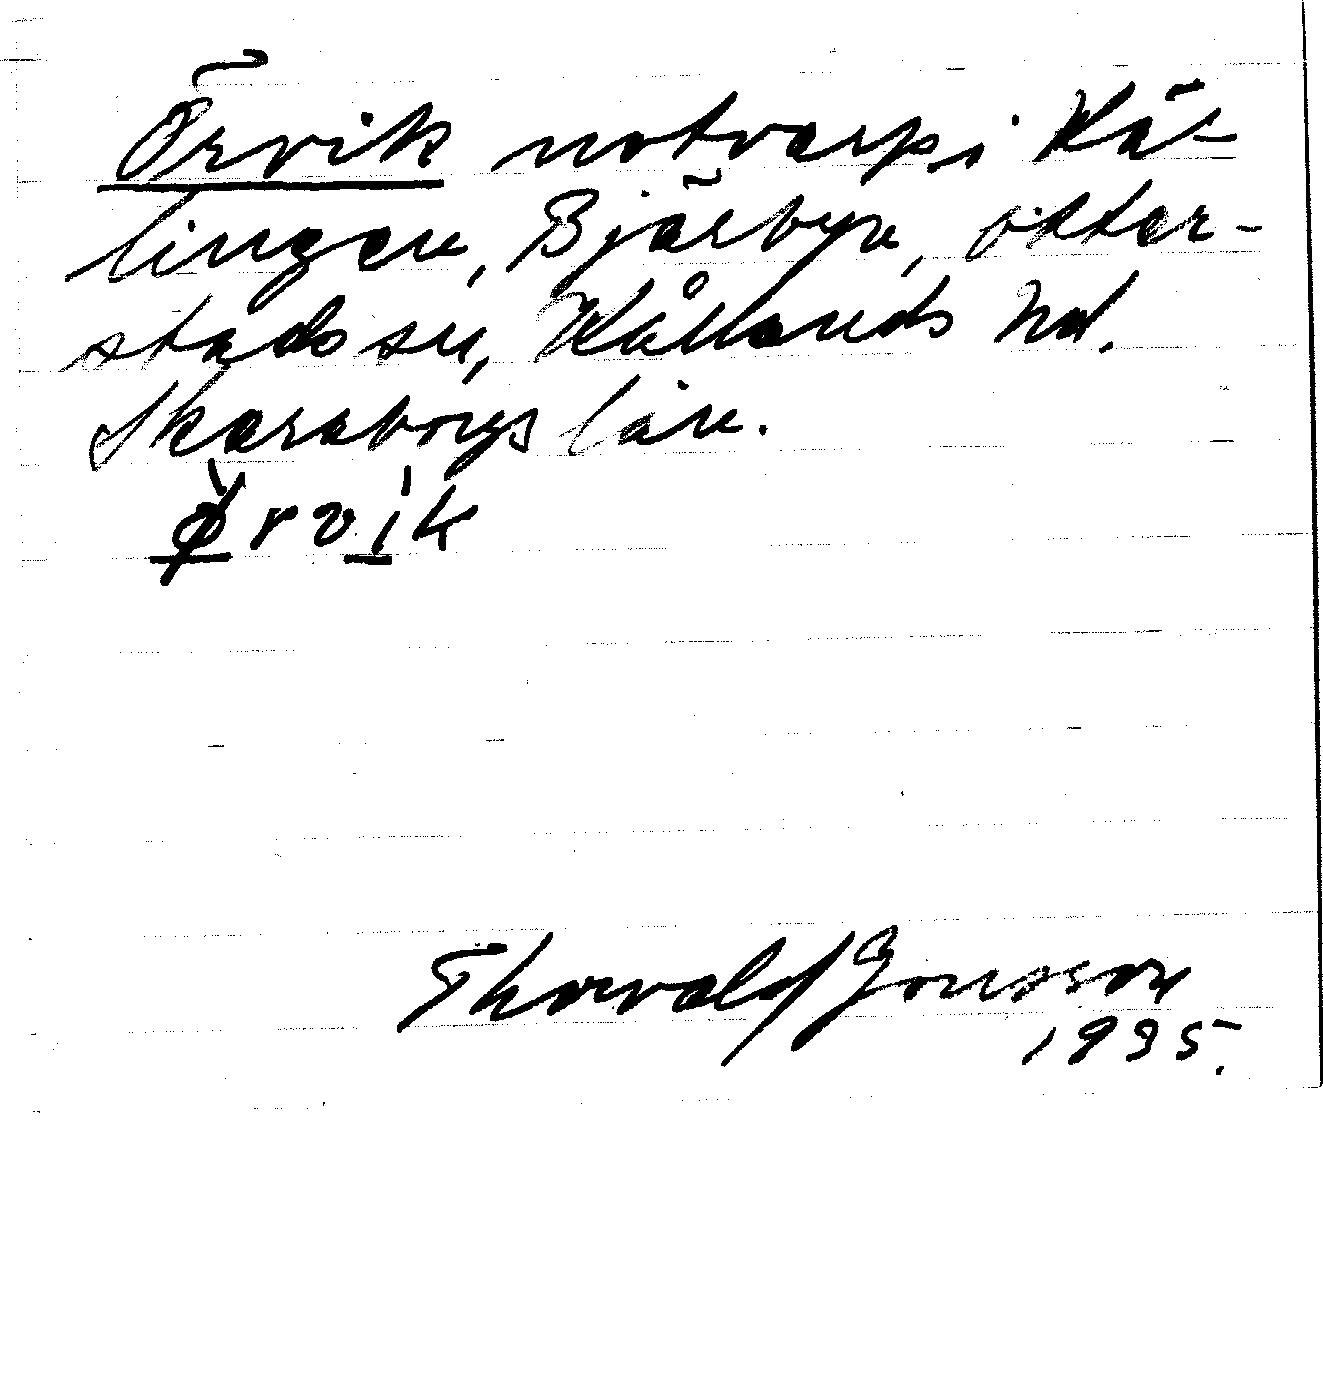 Örvik notvarp i Kä-
lingen, Bjärbyn, Otter-
stads sn, Kållands hd.
Skaraborgs län.
ø̀rvík
Thorvald Jonsson
1935.